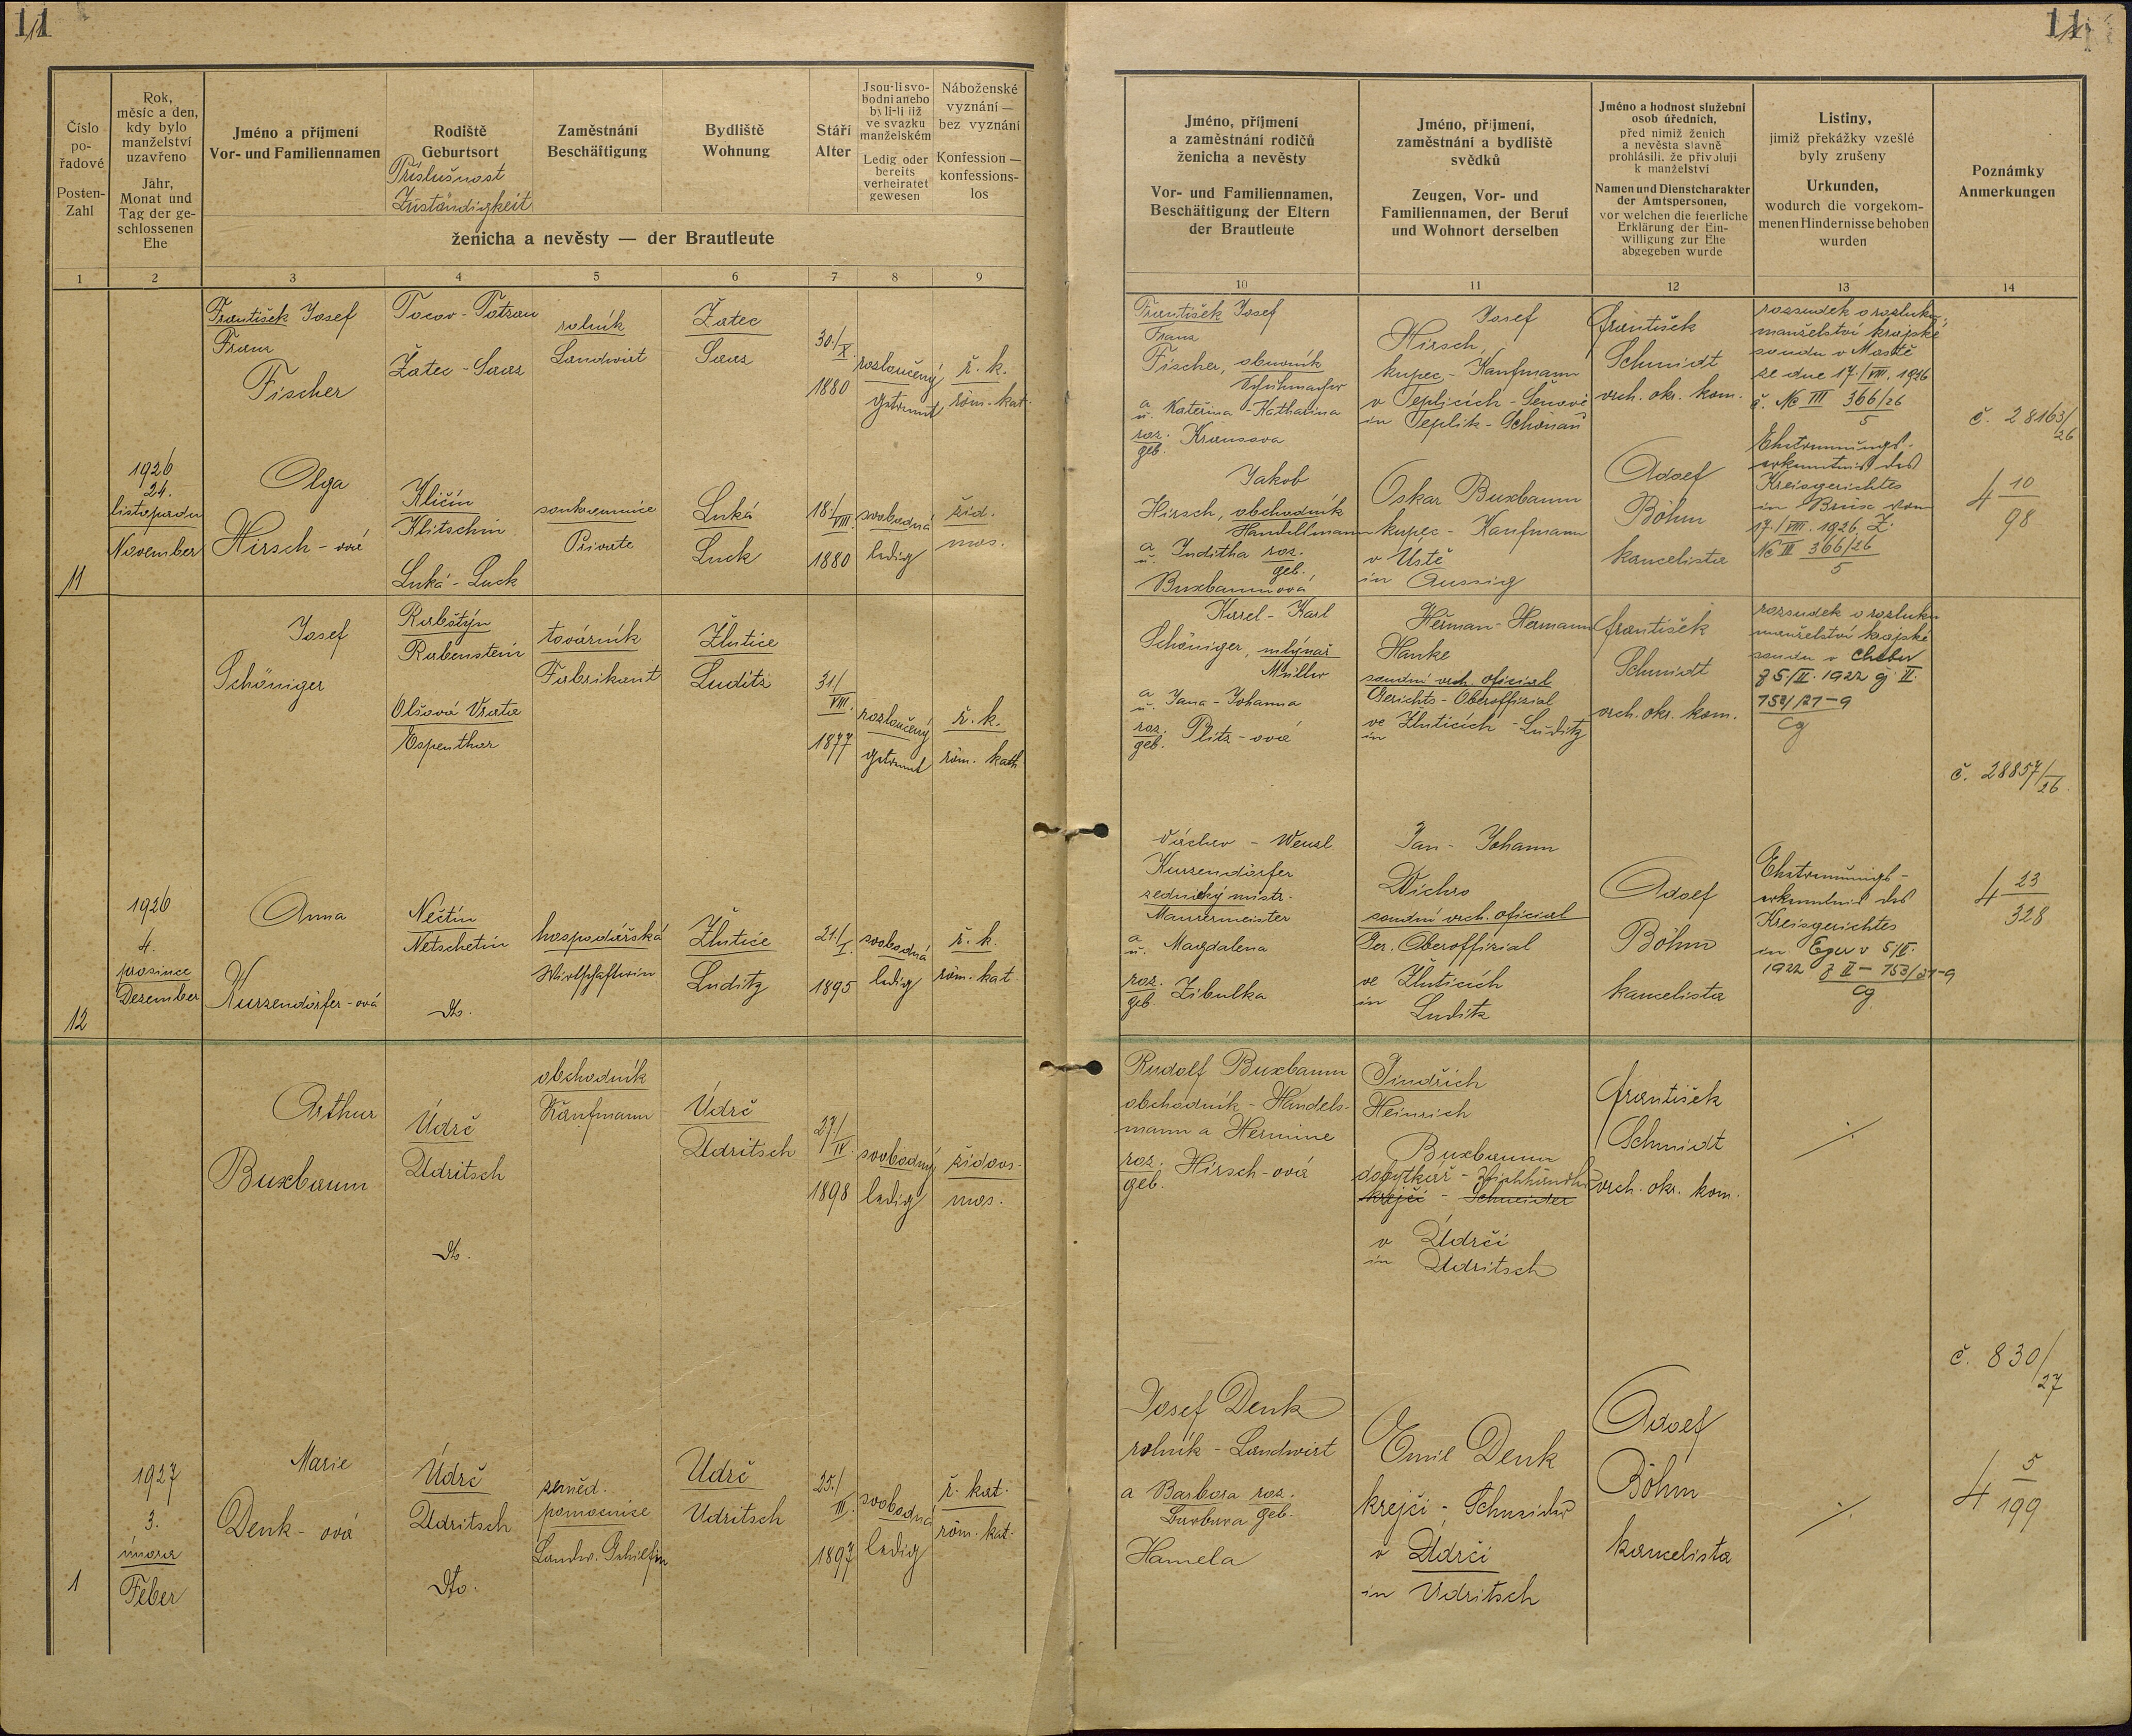 11
11
Číslo
po-
řadové
Posten-
Zahl
Rok,
měsíc a den,
kdy bylo
manželství
uzavřeno
Jahr,
Monat und
Tag der ge-
schlossenen
Ehe
Jméno a příjmení
Vor- und Familiennamen
Rodiště
Geburtsort
Příslušnost
Zuständigkeit
Zaměstnání
Beschäftigung
Bydliště
Wohnung
Stáří
Alter
Jsou-li svo-
bodni anebo
byli-li již
ve svazku
manželském
Ledig oder
bereits
verheiratet
gewesen
Náboženské
vyznání —
bez vyznání
Konfession —
konfessions-
los
ženicha a nevěsty — der Brautleute
Jméno, příjmení
a zaměstnání rodičů
ženicha a nevěsty
Vor- und Familiennamen,
Beschäftigung der Eltern
der Brautleute
Jméno, příjmení,
zaměstnání a bydliště
svědků
Zeugen, Vor- und
Familiennamen, der Beruf
und Wohnort derselben
Jméno a hodnost služební
osob úředních,
před nimiž ženich
a nevěsta slavně
prohlásili, že přivolují
k manželství
Namen und Dienstcharakter
der Amtspersonen,
vor welchen die feierliche
Erklärung der Ein-
willigung zur Ehe
abgegeben wurde
Listiny,
jimiž překážky vzešlé
byly zrušeny
Urkunden,
wodurch die vorgekom-
menen Hindernisse behoben
wurden
Poznámky
Anmerkungen
1 2 3 4 5 6 7 8 9 10 11 12 13 14
František Josef
Franz
Fischer
Tocov - Totzau
Žatec - Saaz
rolník
Landwirt
Žatec
Saaz
30./X.
1880
rozloučený
getrennt
ř. k.
röm. kat.
František Josef
Franz
Fischer, obuvník
Schuhmacher
a
u. Kateřina - Katharina
roz.
geb. Krausova
Josef
Hirsch,
kupec - Kaufmann
v Teplicích - Šenově
in Teplitz - Schönau
František
Schmidt
vrch. okr. kom.
rozsudek o rozluku
manželství krajské
soudu v Mostě
ze dne 17./VIII. 1926
č. Nc III 366/26
5
č. 28163/
26
11
1926
24.
listopadu
November
Olga
Hirsch - ová
Kličín
Klitschin
Luká - Luck
soukromnice
Private
Luká
Luck
18./VIII.
1880
svobodná
ledig
žid.
mos.
Jakob
Hirsch, obchodník
Handelsmann
a
u. Juditha roz.
geb.
Buxbaumová
Oskar Buxbaum
kupec - Kaufmann
v Ústě
in Aussig
Adolf
Böhm
kancelista
Ehetrennungs-
erkenntnis des
Kreisgerichtes
in Brüx vom
17./VIII. 1926, Z.
Nc III 366/26
5
4 10
98
Josef
Schöniger
Rabštýn
Rabenstein
Olšová Vrata
Espenthor
továrník
Fabrikant
Žlutice
Luditz
31./
VIII.
1877
rozloučený
getrennt
ř. k.
röm. kath.
Karel - Karl
Schöniger, mlýnař
Müller
a
u. Jana - Johanna
roz.
geb. Plitz - ová
Heřman - Hermann
Hanke
soudní vrch. oficial
Gerichts - Oberoffizial
ve Žluticích - Luditz
in
František
Schmidt
vrch. okr. kom.
rozsudek o rozluku
manželství krajské
soudu v Chebu
z 5./II. 1922 g II.
753/21-9
Cg
č. 28857/
26
12
1926
4.
prosince
Dezember
Anna
Kurzendörfer - ová
Nečtín
Netschetin
dto.
hospodářská
Wirtschafterin
Žlutice
Luditz
21./
I.
1895
svobodná
ledig
ř. k.
röm. kat.
Václav - Wenzl
Kurzendörfer
zednický mistr.
Maurermeister
a
u. Magdalena
roz.
geb. Zibulka
Jan - Johann
Wichro
soudní vrch. oficial
Ger. Oberoffizial
ve Žluticích
in Luditz
Adolf
Böhm
kancelista
Ehetrennungs-
erkenntnis des
Kreisgerichtes
in Eger v 5./II.
1922 z II - 753/21-9
Cg
4 23
328
Arthur
Buxbaum
Údrč
Udritsch
dto.
obchodník
Kaufmann
Údrč
Udritsch
27./
IV.
1898
svobodný
ledig
židovs.
mos.
Rudolf Buxbaum
obchodník - Handels-
mann a Hermine
roz.
geb. Hirsch - ová
Jindřich
Heinrich
Buxbaum
dobytkář - Viehhändler
krejčí - Schneider
v Údrči
in Udritsch
František
Schmidt
vrch. okr. kom.
č. 830/
27
1
1927
3.
února
Feber
Marie
Denk - ová
Údrč
Udritsch
dto.
zeměd.
pomocnice
Landw. Gehilfin
Údrč
Udritsch
25./
III.
1897
svobodná
ledig
ř. kat.
röm. kat.
Josef Denk
rolník - Landwirt
a Barbora roz.
Barbara geb.
Hamela
Emil Denk
krejčí - Schneider
v Údrči
in Udritsch
Adolf
Böhm
kancelista
4 5
199